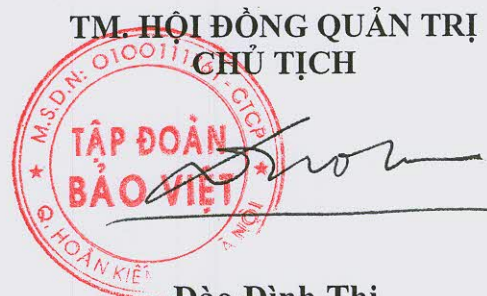 TM. HỘI ĐỒNG QUẢN TRỊ
CHỦ TỊCH
M.S.D.N: 0100111761 - CTCP
TẬP ĐOÀN
BẢO VIỆT
Q. HOÀN KIẾM
HÀ NỘI
Đào Đình Thi